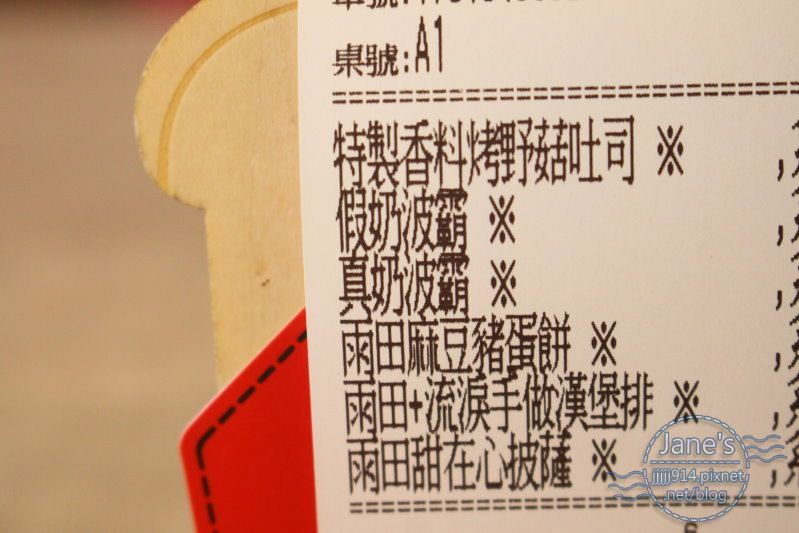 桌號:A1
特製香料烤野菇吐司 ※
假奶波霸 ※
真奶波霸 ※
雨田麻豆豬蛋餅 ※
雨田+流淚手做漢堡排 ※
雨田甜在心披薩 ※
Jane's
jjjjj914.pixnet
.net/blog